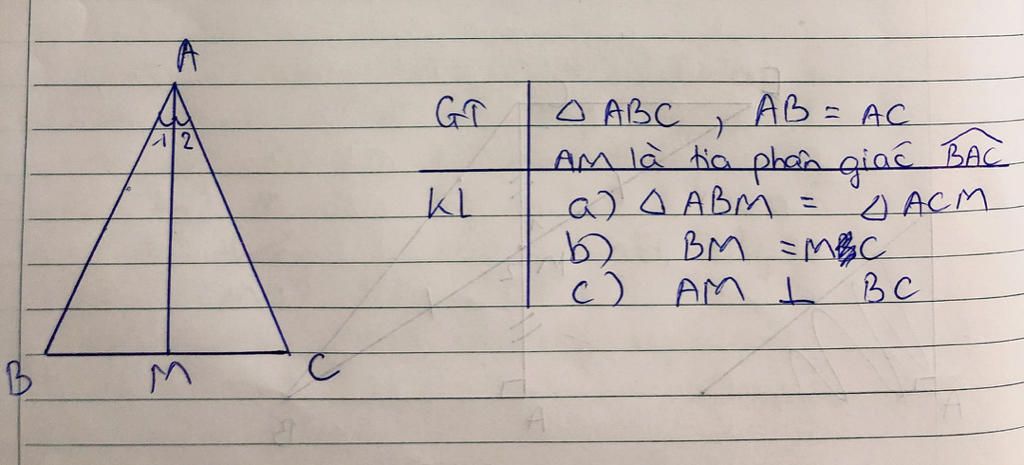 A
1 2
B M C
GT Δ ABC , AB = AC
AM là tia phân giác \widehat{BAC}
KL a) Δ ABM = Δ ACM
b) BM = MC
c) AM ⊥ BC